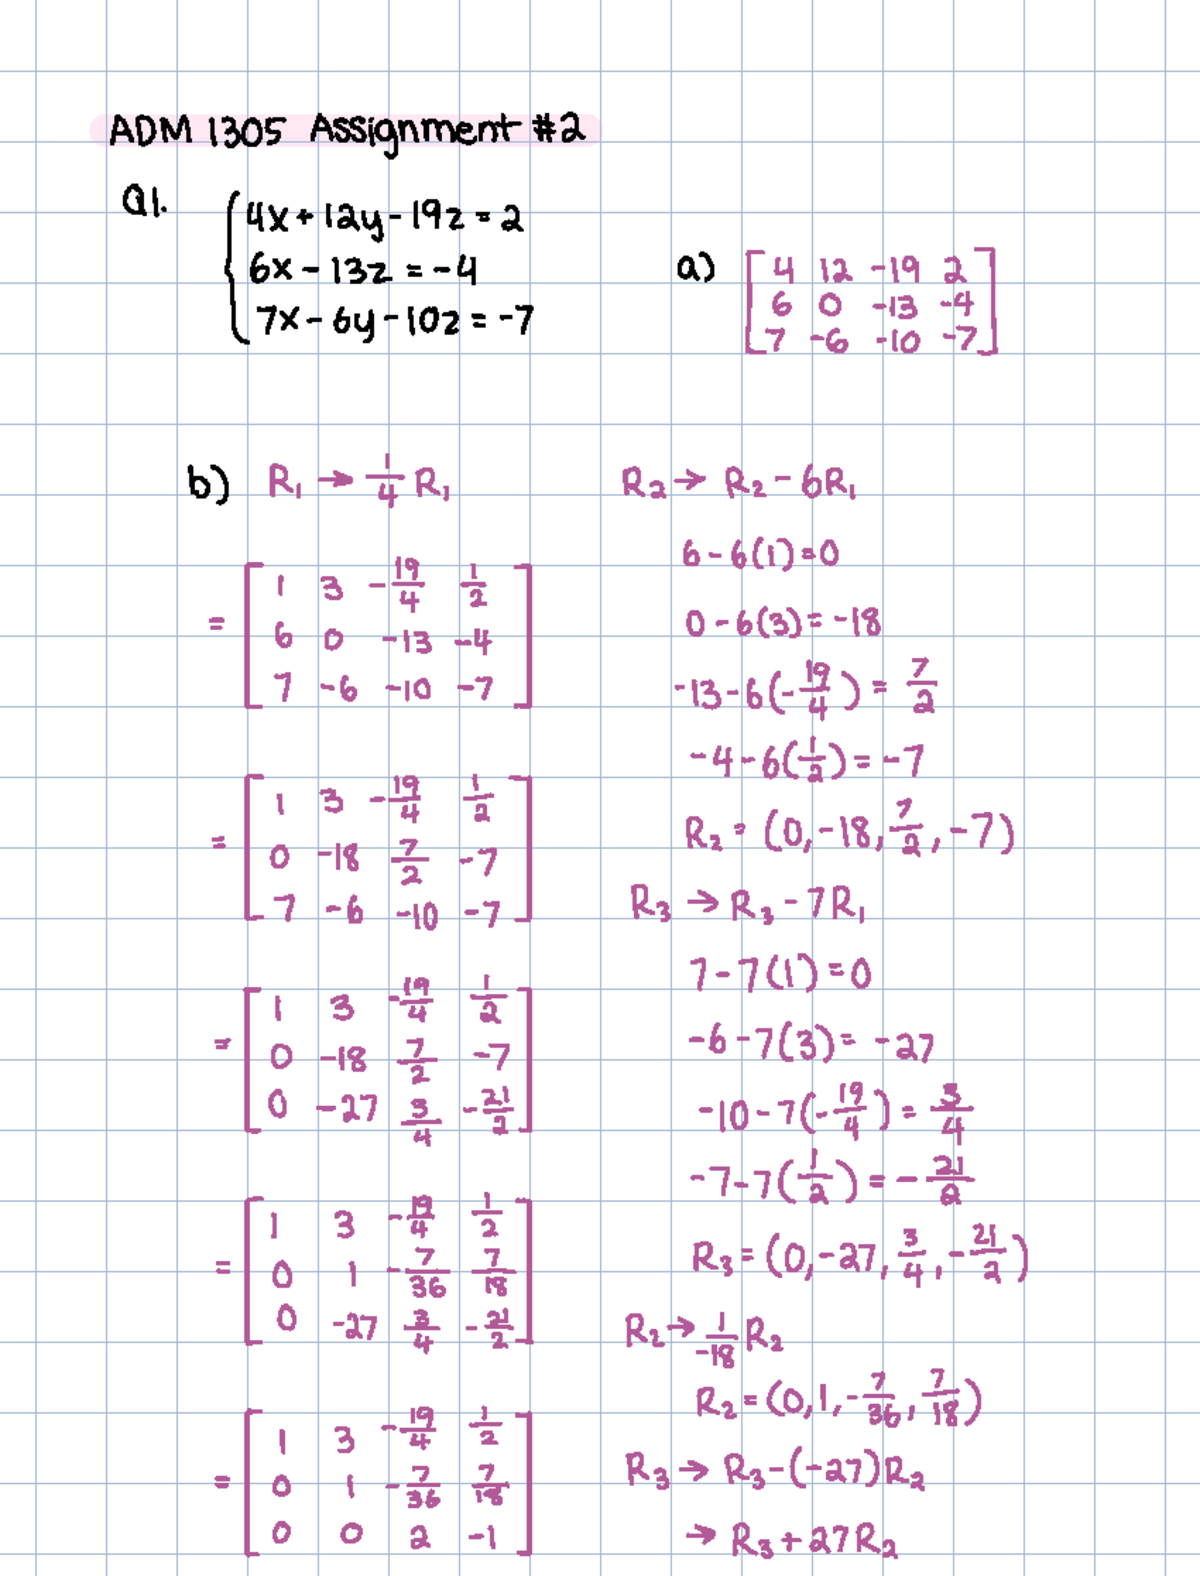 ADM 1305 Assignment #2
Q1.
4x + 12y - 19z = 2
6x - 13z = -4
7x - 6y - 10z = -7
a)
4 12 -19 2
6 0 -13 -4
7 -6 -10 -7
b) R₁ → 1/4 R₁
=
1 3 -19/4 1/2
6 0 -13 -4
7 -6 -10 -7
=
1 3 -19/4 1/2
0 -18 7/2 -7
7 -6 -10 -7
=
1 3 -19/4 1/2
0 -18 7/2 -7
0 -27 3/4 -21/2
=
1 3 -19/4 1/2
0 1 -7/36 7/18
0 -27 3/4 -21/2
=
1 3 -19/4 1/2
0 1 -7/36 7/18
0 0 2 -1
R₂ → R₂ - 6R₁
6 - 6(1) = 0
0 - 6(3) = -18
-13 - 6(-19/4) = 7/2
-4 - 6(1/2) = -7
R₂ = (0, -18, 7/2, -7)
R₃ → R₃ - 7R₁
7 - 7(1) = 0
-6 - 7(3) = -27
-10 - 7(-19/4) = 3/4
-7 - 7(1/2) = -21/2
R₃ = (0, -27, 3/4, -21/2)
R₂ → 1/-18 R₂
R₂ = (0, 1, -7/36, 7/18)
R₃ → R₃ - (-27)R₂
→ R₃ + 27R₂